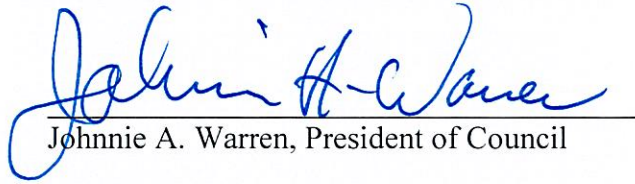 Johnnie A. Warren
Johnnie A. Warren, President of Council